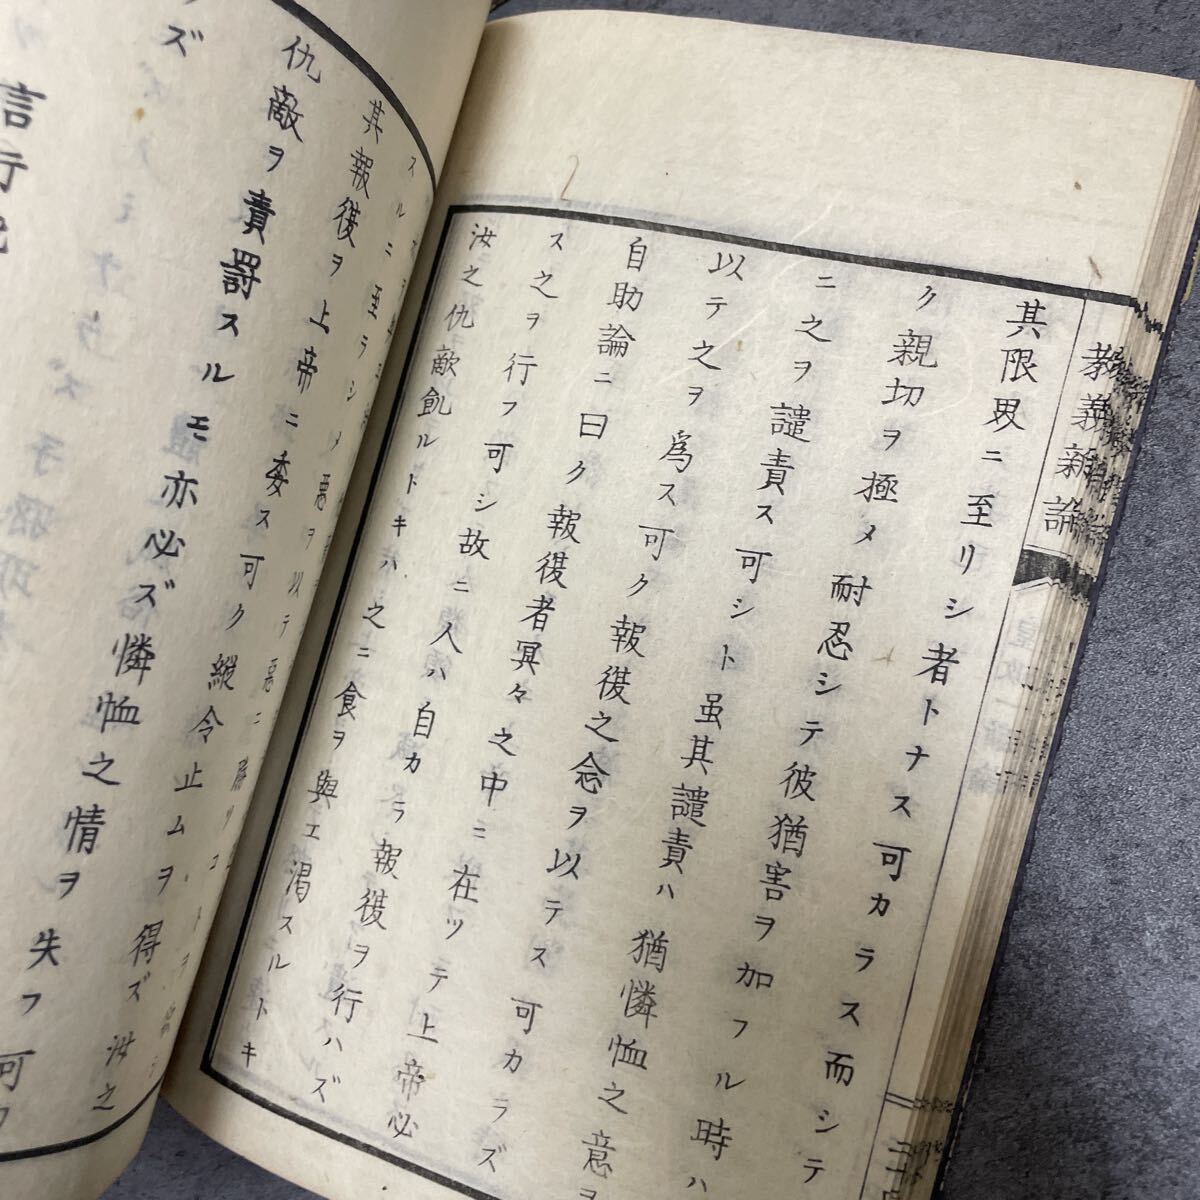 教義新論
其限界ニ至リシ者トナス可カラス而シテ
ク親切ヲ極メ耐忍シテ彼猶害ヲ加フル時ハ
ニ之ヲ譴責ス可シト虽其譴責ハ猶憐恤之意ヲ
以テ之ヲ爲ス可ク報復之念ヲ以テス可カラズ
自助論ニ曰ク報復者冥々之中ニ在ツテ上帝必
ス之ヲ行フ可シ故ニ人ハ自カラ報復ヲ行ハズ
汝之仇敵飢ルトキハ之ニ食ヲ與エ渇スルトキ
スルニ至ラシメ惡ヲ以テ惡ニ勝ツ
其報復ヲ上帝ニ委ス可ク縱令止ムヲ得ズ汝之
仇敵ヲ責罸スルモ亦必ズ憐恤之情ヲ失フ可カ
ズ
言行